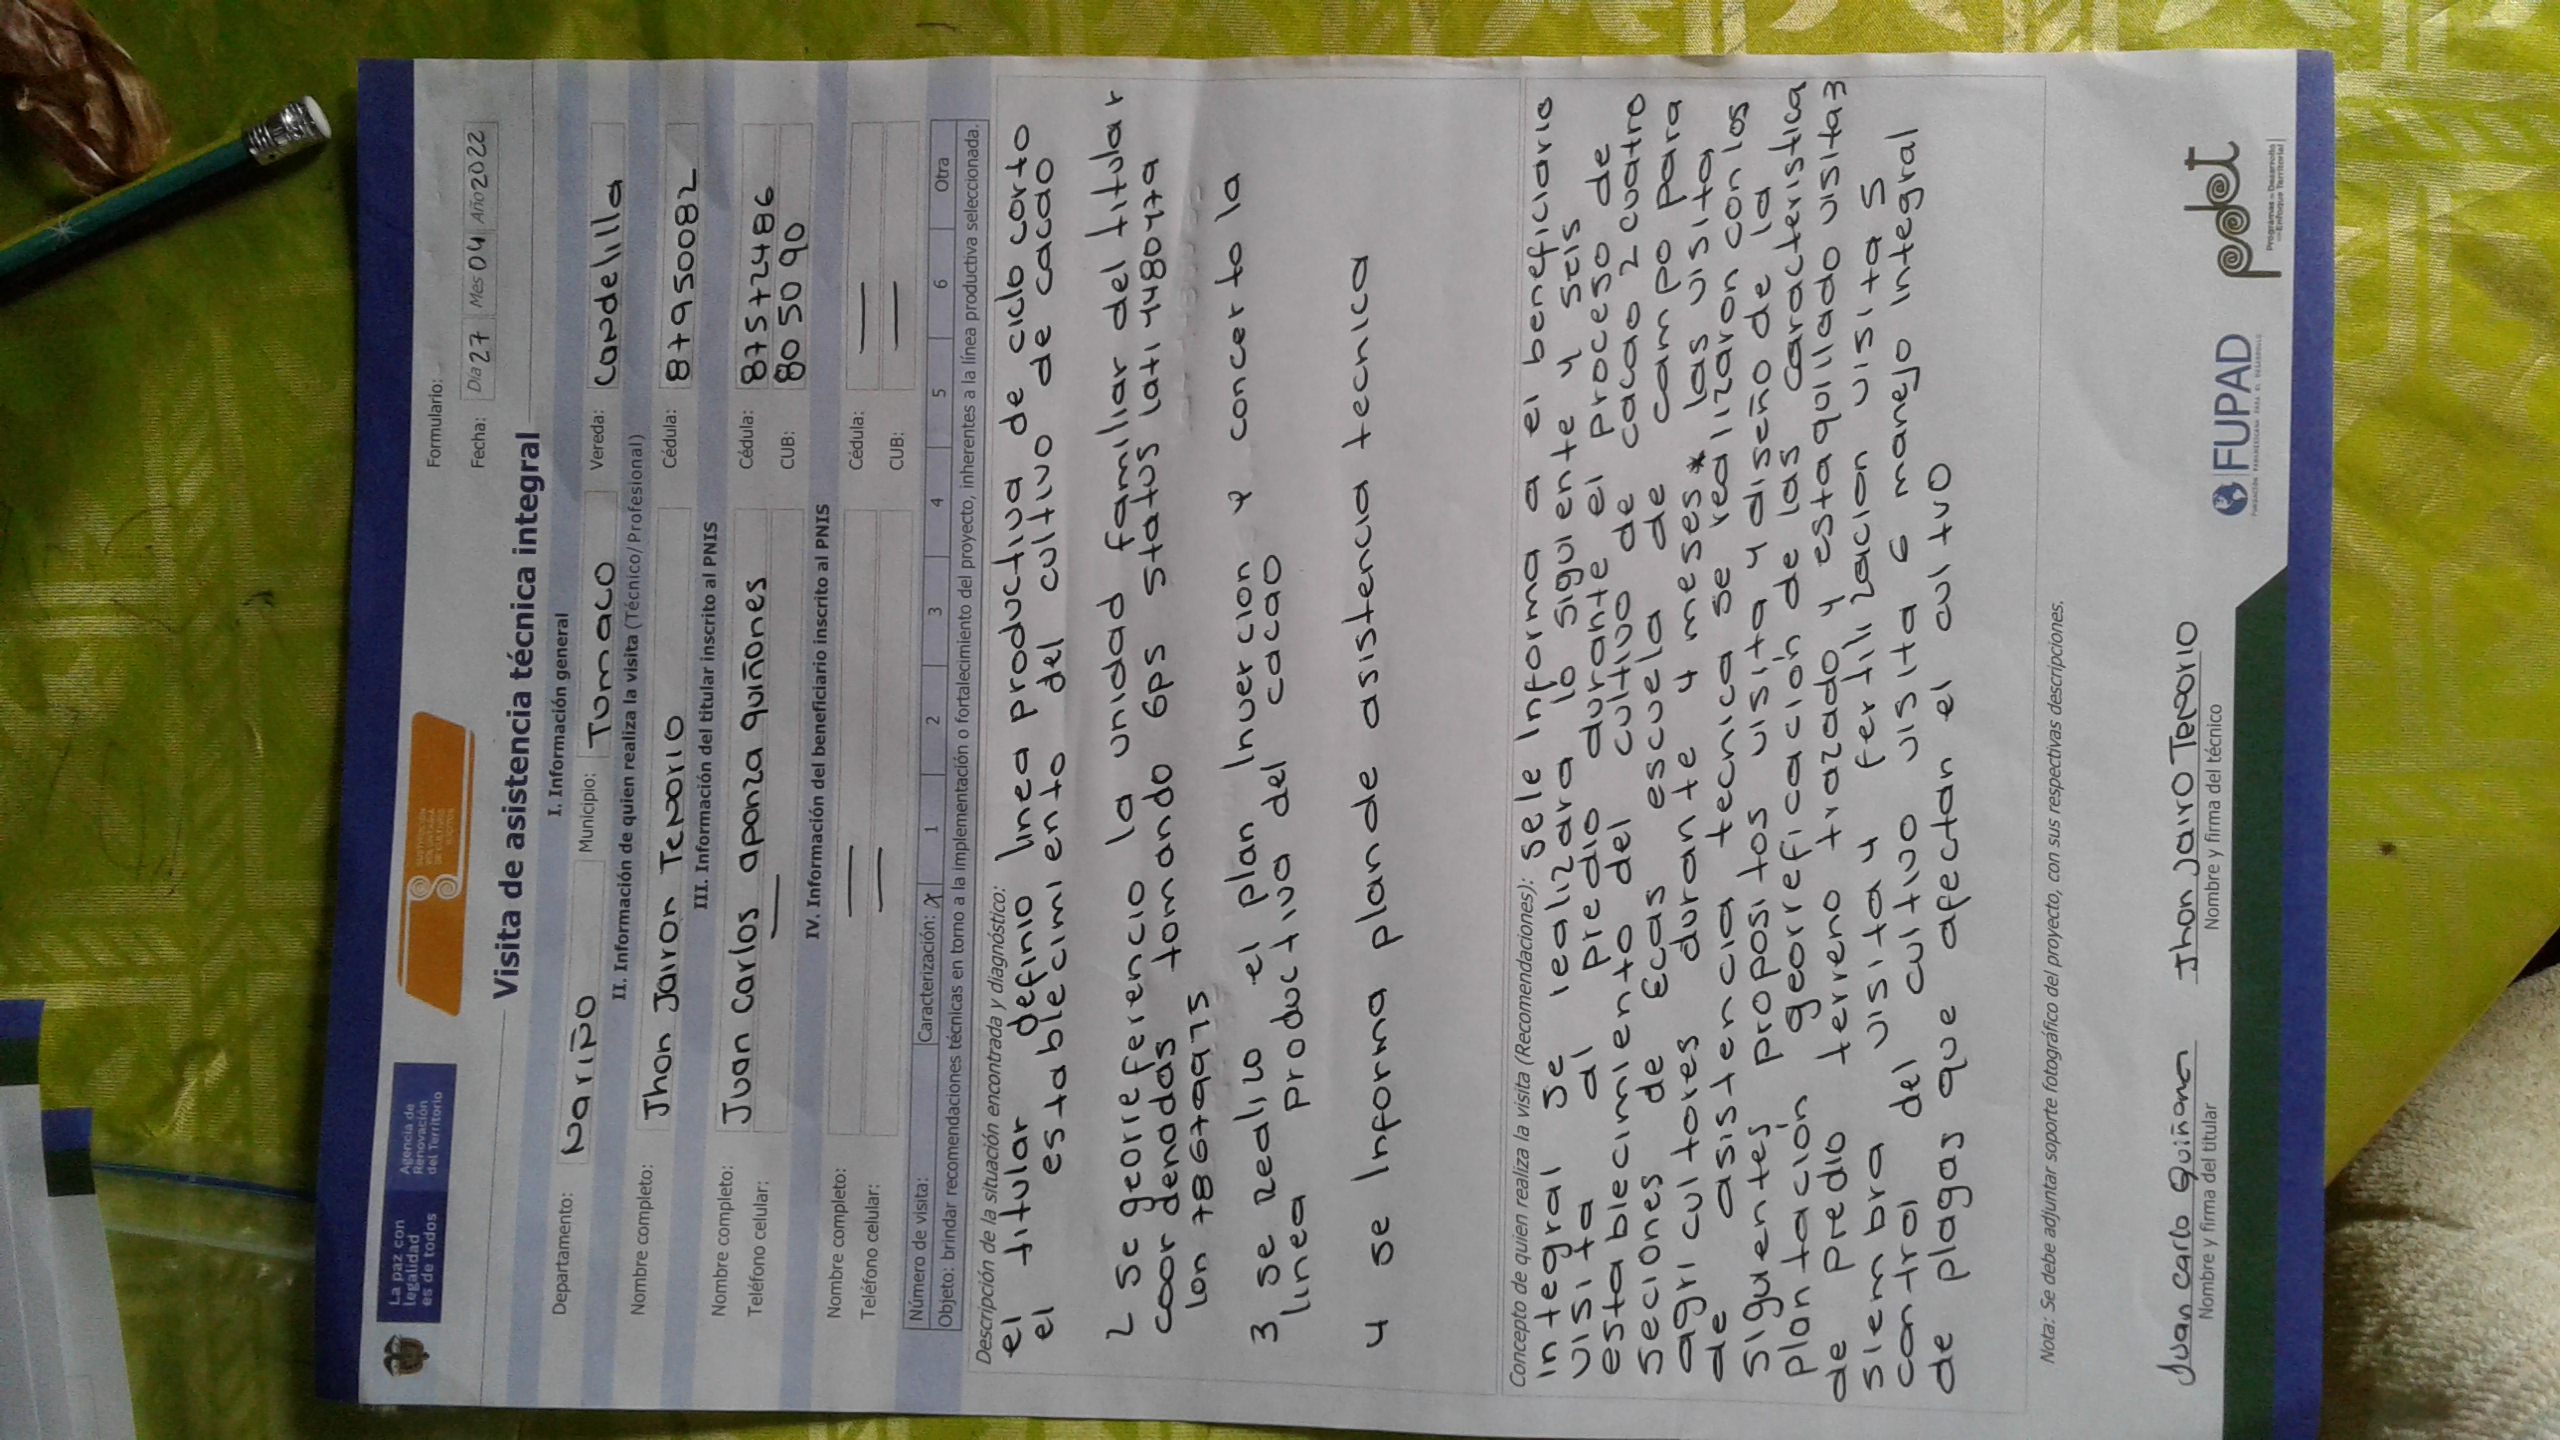 La paz con
legalidad
es de todos
Agencia de
Renovación
del Territorio
SUSTITUCIÓN
VOLUNTARIA
DE CULTIVOS
ILÍCITOS
Formulario:
Fecha: Día 27 Mes 04 Año 2022
Visita de asistencia técnica integral
I. Información general
Departamento: Nariño Municipio: Tumaco Vereda: Candelilla
II. Información de quien realiza la visita (Técnico/Profesional)
Nombre completo: Jhon Jairon Tenorio Cédula: 87950082
III. Información del titular inscrito al PNIS
Nombre completo: Juan Carlos aponza quiñones Cédula: 87572486
Teléfono celular: — CUB: 805090
IV. Información del beneficiario inscrito al PNIS
Nombre completo: — Cédula: —
Teléfono celular: — CUB: —
Número de visita: Caracterización: X 1 2 3 4 5 6 Otra
Objeto: brindar recomendaciones técnicas en torno a la implementación o fortalecimiento del proyecto, inherentes a la línea productiva seleccionada.
Descripción de la situación encontrada y diagnóstico:
el titular definio linea productiva de ciclo corto
el establecimiento del cultivo de cacao
2 se georreferencio la unidad familiar del titular
coordendas tomando Gps status lati 1480479
lon 78679975
3 se Realizo el plan Invercion y concerto la
linea productiva del cacao
4 se Informa plan de asistencia tecnica
Concepto de quien realiza la visita (Recomendaciones): se le Informa a el beneficiario
integral se realizara lo siguiente 4 seis
visita al predio durante el proceso de
establecimiento del cultivo de cacao 2 cuatro
seciones de Ecas escuela de campo para
agricultores durante 4 meses* las visita
de asistencia tecnica se realizaron con los
siguentes propositos visita y diseño de la
plantación georreficación de las caracteristica
de predio terreno trazado y estaquillado visita3
siembra visita 4 fertilizacion visita 5
control del cultivo visita 6 manejo integral
de plagas que afectan el cultvo
Nota: Se debe adjuntar soporte fotográfico del proyecto, con sus respectivas descripciones.
Juan carlo Quiñonon Jhon Jairo Tenorio
Nombre y firma del titular Nombre y firma del técnico
FUPAD
pdet
Programas de Desarrollo
con Enfoque Territorial